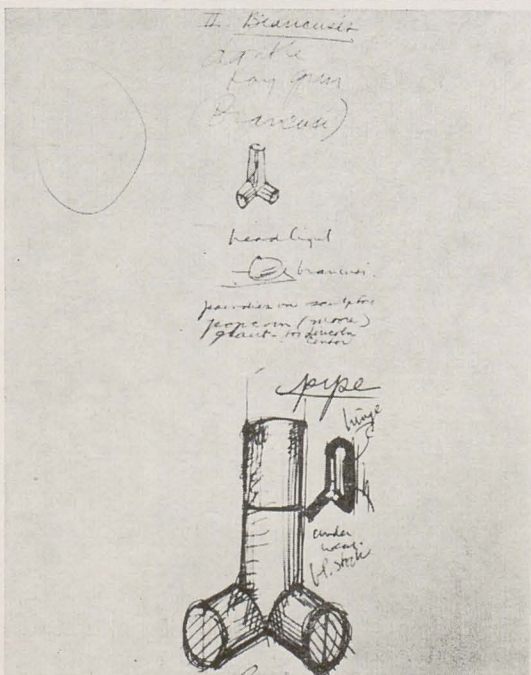 II. Brancusi's
double
ray gun
(Brancusi)
headlight
brancusi.
parodies on sculptors
popcorn (moore)
giant for Lincoln
Center
pipe
hinge
under
wear.